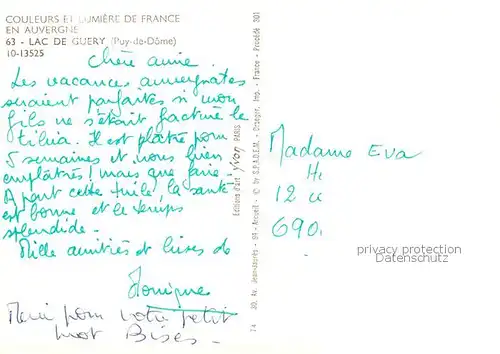 COULEURS ET LUMIÈRE DE FRANCE
EN AUVERGNE
63 - LAC DE GUERY (Puy-de-Dôme)
10-13525
Chère amie.
Les vacances auvergnates
seraient parfaites si mon
fils ne s'était fracturé le
tibia. Il est plâtré pour
5 semaines et nous bien
emplâtrés! mais que faire.
A part cette tuile, la santé
est bonne et le temps
splendide.
Mille amitiés et bises de
Monique
Merci pour votre petit
mot Bises.
Editions d'art Yvon PARIS
74 30, Av. Jean-Jaurès - 94 - Arcueil - © by S.P.A.D.E.M. - Draeger, Imp. - France - Procédé 301
Madame Eva
H
12
690
privacy protection
Datenschutz